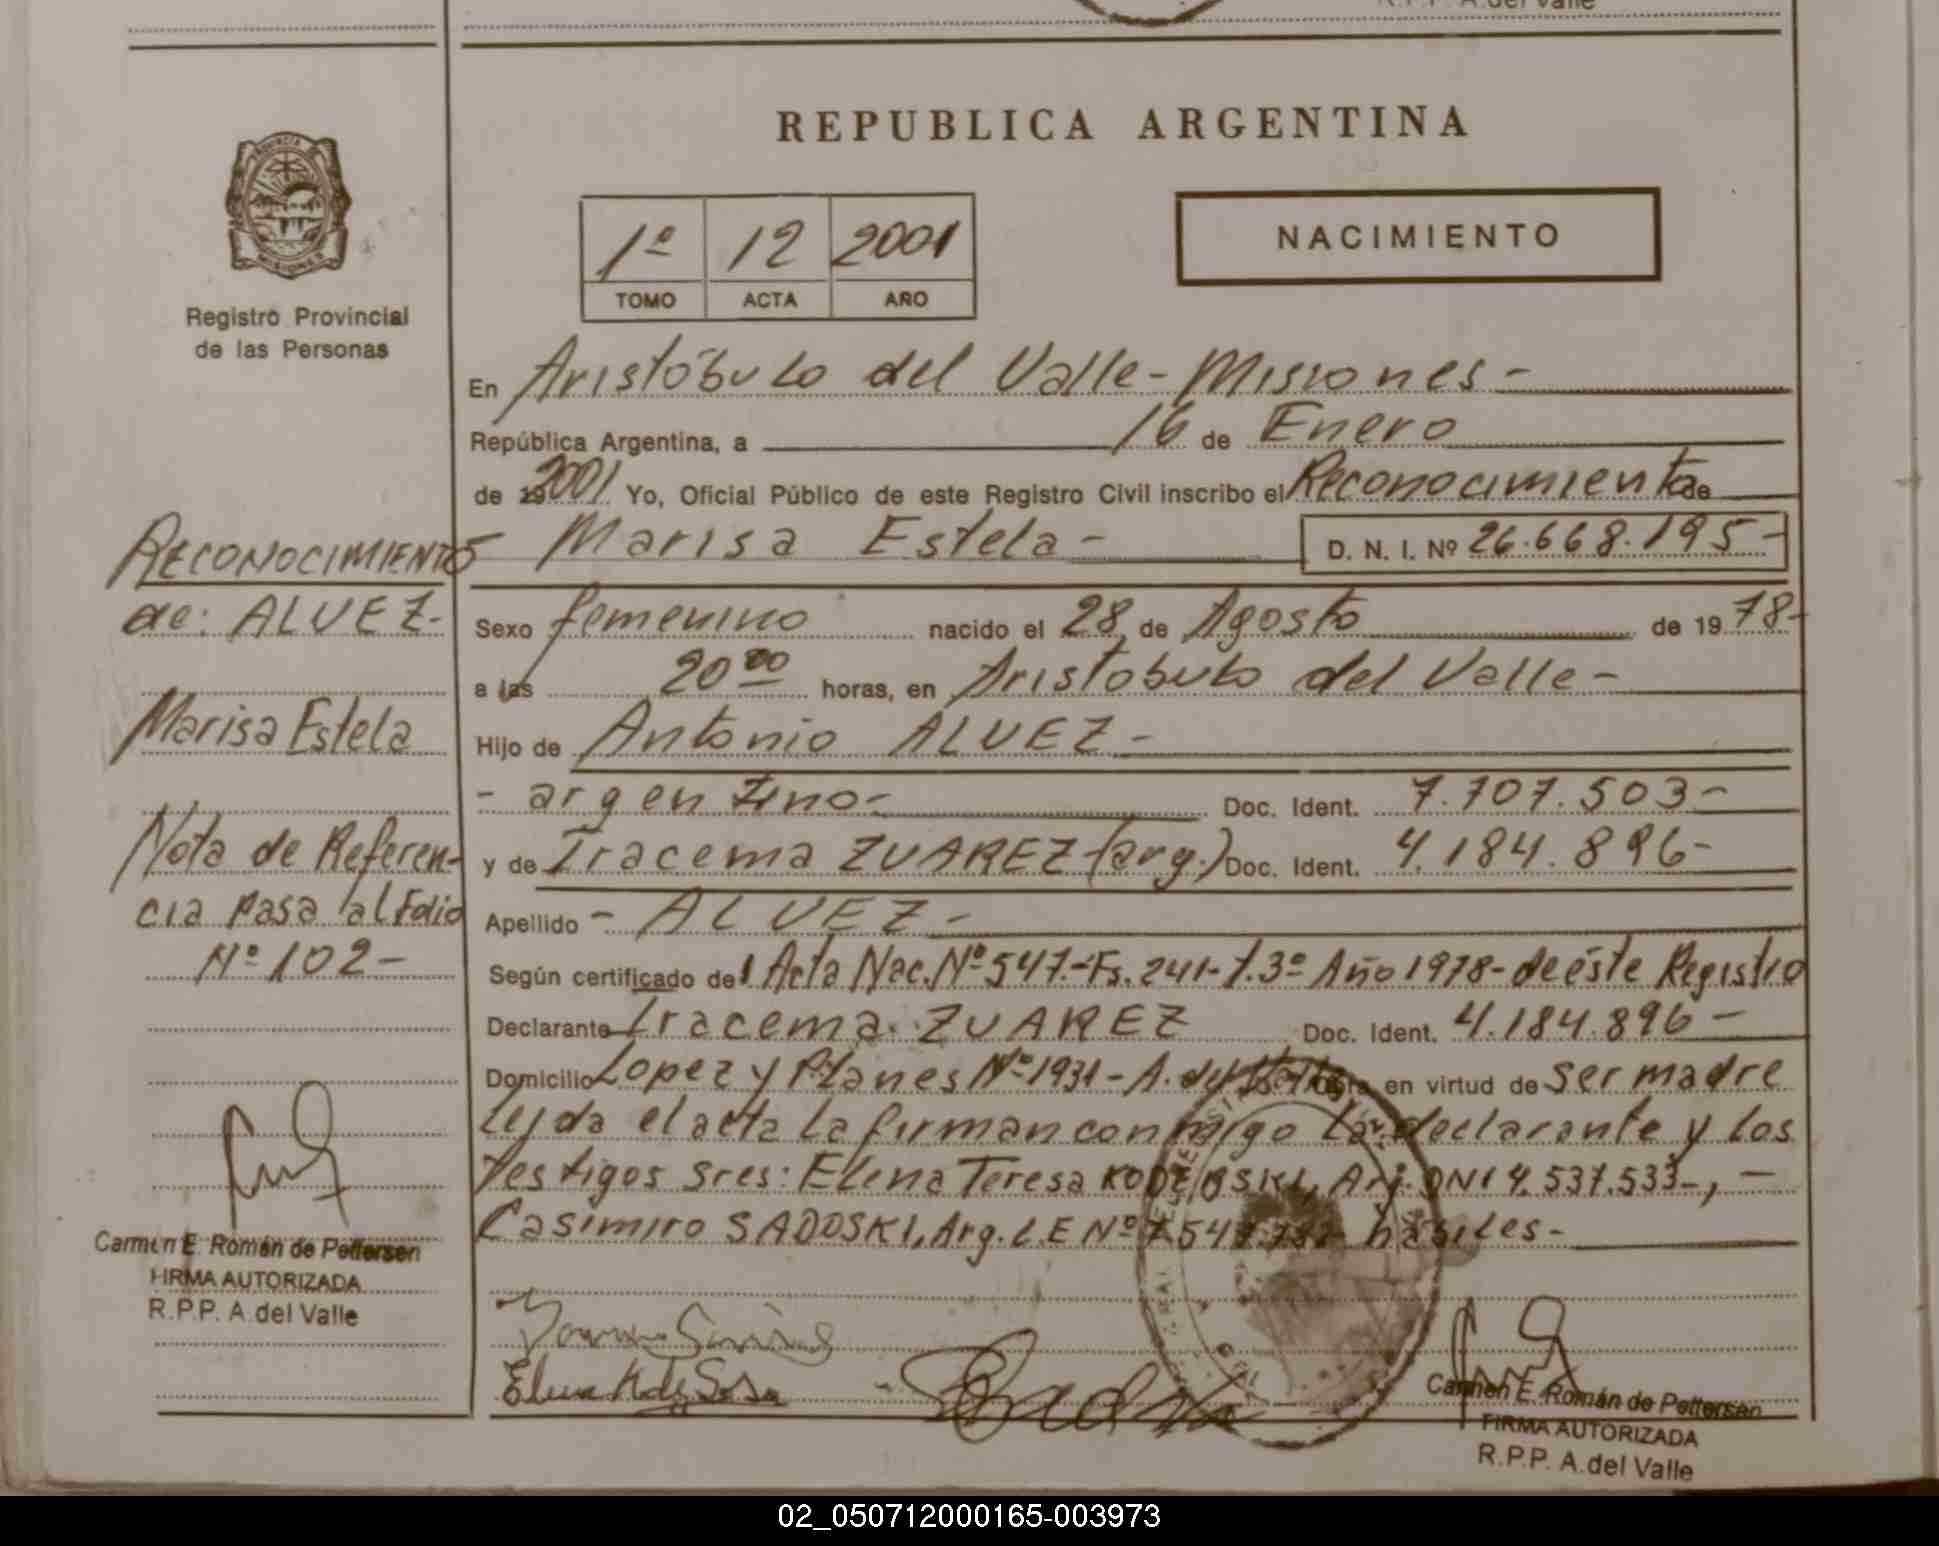 REPUBLICA ARGENTINA
PROVINCIA
MISIONES
Registro Provincial
de las Personas
1º 12 2001
TOMO ACTA AÑO
NACIMIENTO
En Aristóbulo del Valle - Misiones -
República Argentina, a 16 de Enero
de 19 2001 Yo, Oficial Público de este Registro Civil inscribo el Reconocimiento de
- Marisa Estela - D. N. I. Nº 26.668.195 -
Sexo femenino nacido el 28 de Agosto de 19 78 -
a las 20 00 horas, en Aristobulo del Valle -
Hijo de Antonio ALVEZ -
- argentino - Doc. Ident. 7.707.503 -
y de Iracema ZUAREZ (arg.) Doc. Ident. 4.184.896 -
Apellido - ALVEZ -
Según certificado del Acta Nac. Nº 547.- Fs. 241 - T. 3º Año 1978 - de éste Registro
Declarante Iracema ZUAREZ Doc. Ident. 4.184.896 -
Domicilio Lopez y Planes Nº 1931 - A. del Valle en virtud de ser madre
Leída el acta la firman conmigo la declarante y los
testigos Sres: Elena Teresa Arg. DNI 4.537.533 -, -
Casimiro SADOSKI, Arg. L.E Nº hábiles -
RECONOCIMIENTO
de: ALVEZ -
Marisa Estela
Nota de Referen-
cia pasa al Folio
Nº 102 -
Carmen E. Román de Pettersen
FIRMA AUTORIZADA
R.P.P. A. del Valle
Carmen E. Román de Pettersen
FIRMA AUTORIZADA
R.P.P. A. del Valle
02_050712000165-003973